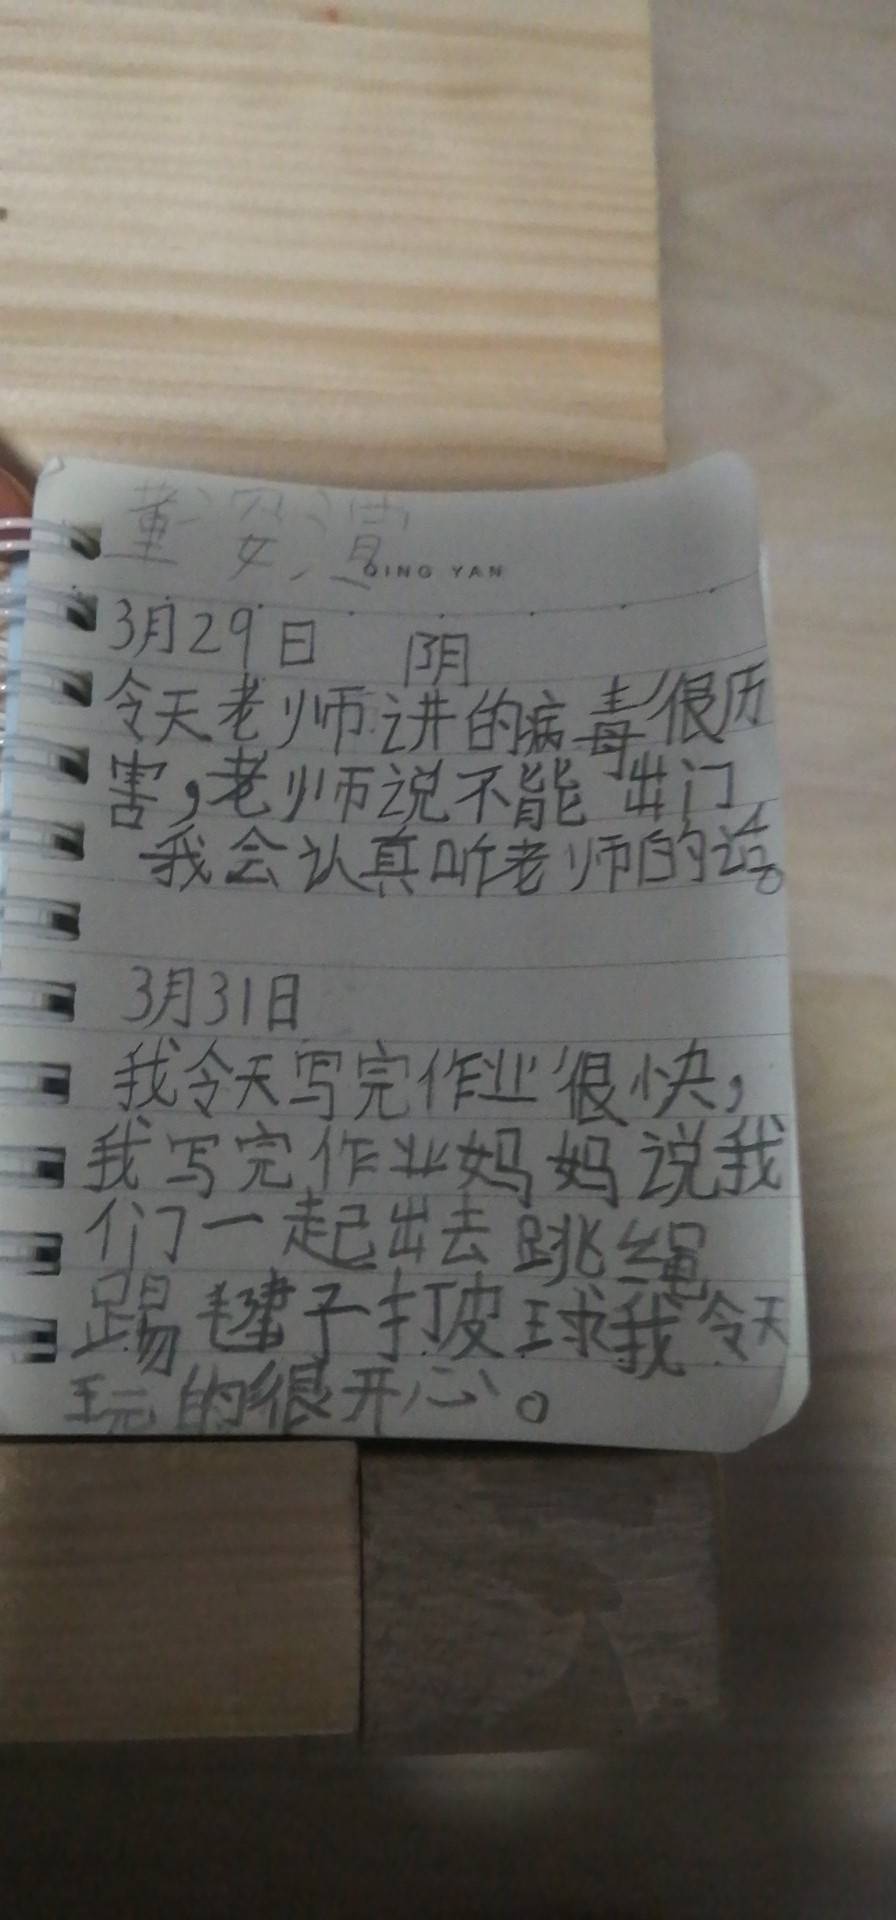 董姿
QING YAN
3月29日 阴
令天老师讲的病毒很历
害，老师说不能出门
我会认真听老师的话。
3月31日
我令天写完作业很快，
我写完作业妈妈说我
们一起出去跳绳
踢毽子打皮球我令天
玩的很开心。